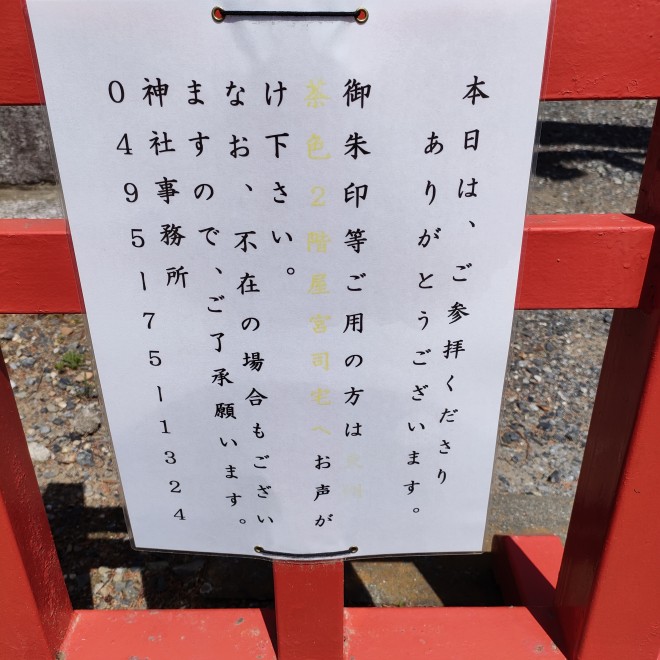 本日は、ご参拝くださり
ありがとうございます。
御朱印等ご用の方は
茶色2階屋宮司宅へお声が
け下さい。
なお、不在の場合もござい
ますので、ご了承願います。
神社事務所
0495-75-1324